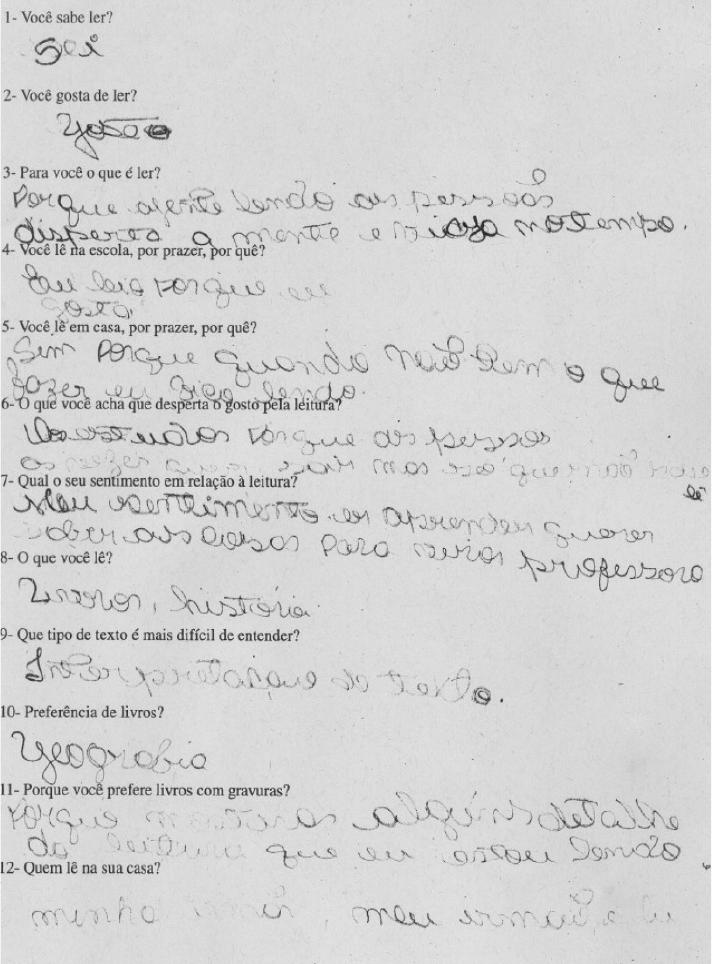 1- Você sabe ler?
Sei
2- Você gosta de ler?
3- Para você o que é ler?
Porque agente lendo as pessoas
disperta a mente e viaja no tempo.
4- Você lê na escola, por prazer, por quê?
Eu leio porque eu
gosto.
5- Você lê em casa, por prazer, por quê?
Sim Porque quando não tem o que
fazer eu fico lendo.
6- O que você acha que desperta o gosto pela leitura?
porque as pessoas
as mas não
7- Qual o seu sentimento em relação à leitura?
lê
Meu sentimento aprender querer
saber as coisas para professora
8- O que você lê?
Livros, história
9- Que tipo de texto é mais difícil de entender?
do texto.
10- Preferência de livros?
Geografia
11- Porque você prefere livros com gravuras?
Porque alguns detalhe
da leitura que eu estou lendo
12- Quem lê na sua casa?
minha irmã, meu irmão, e